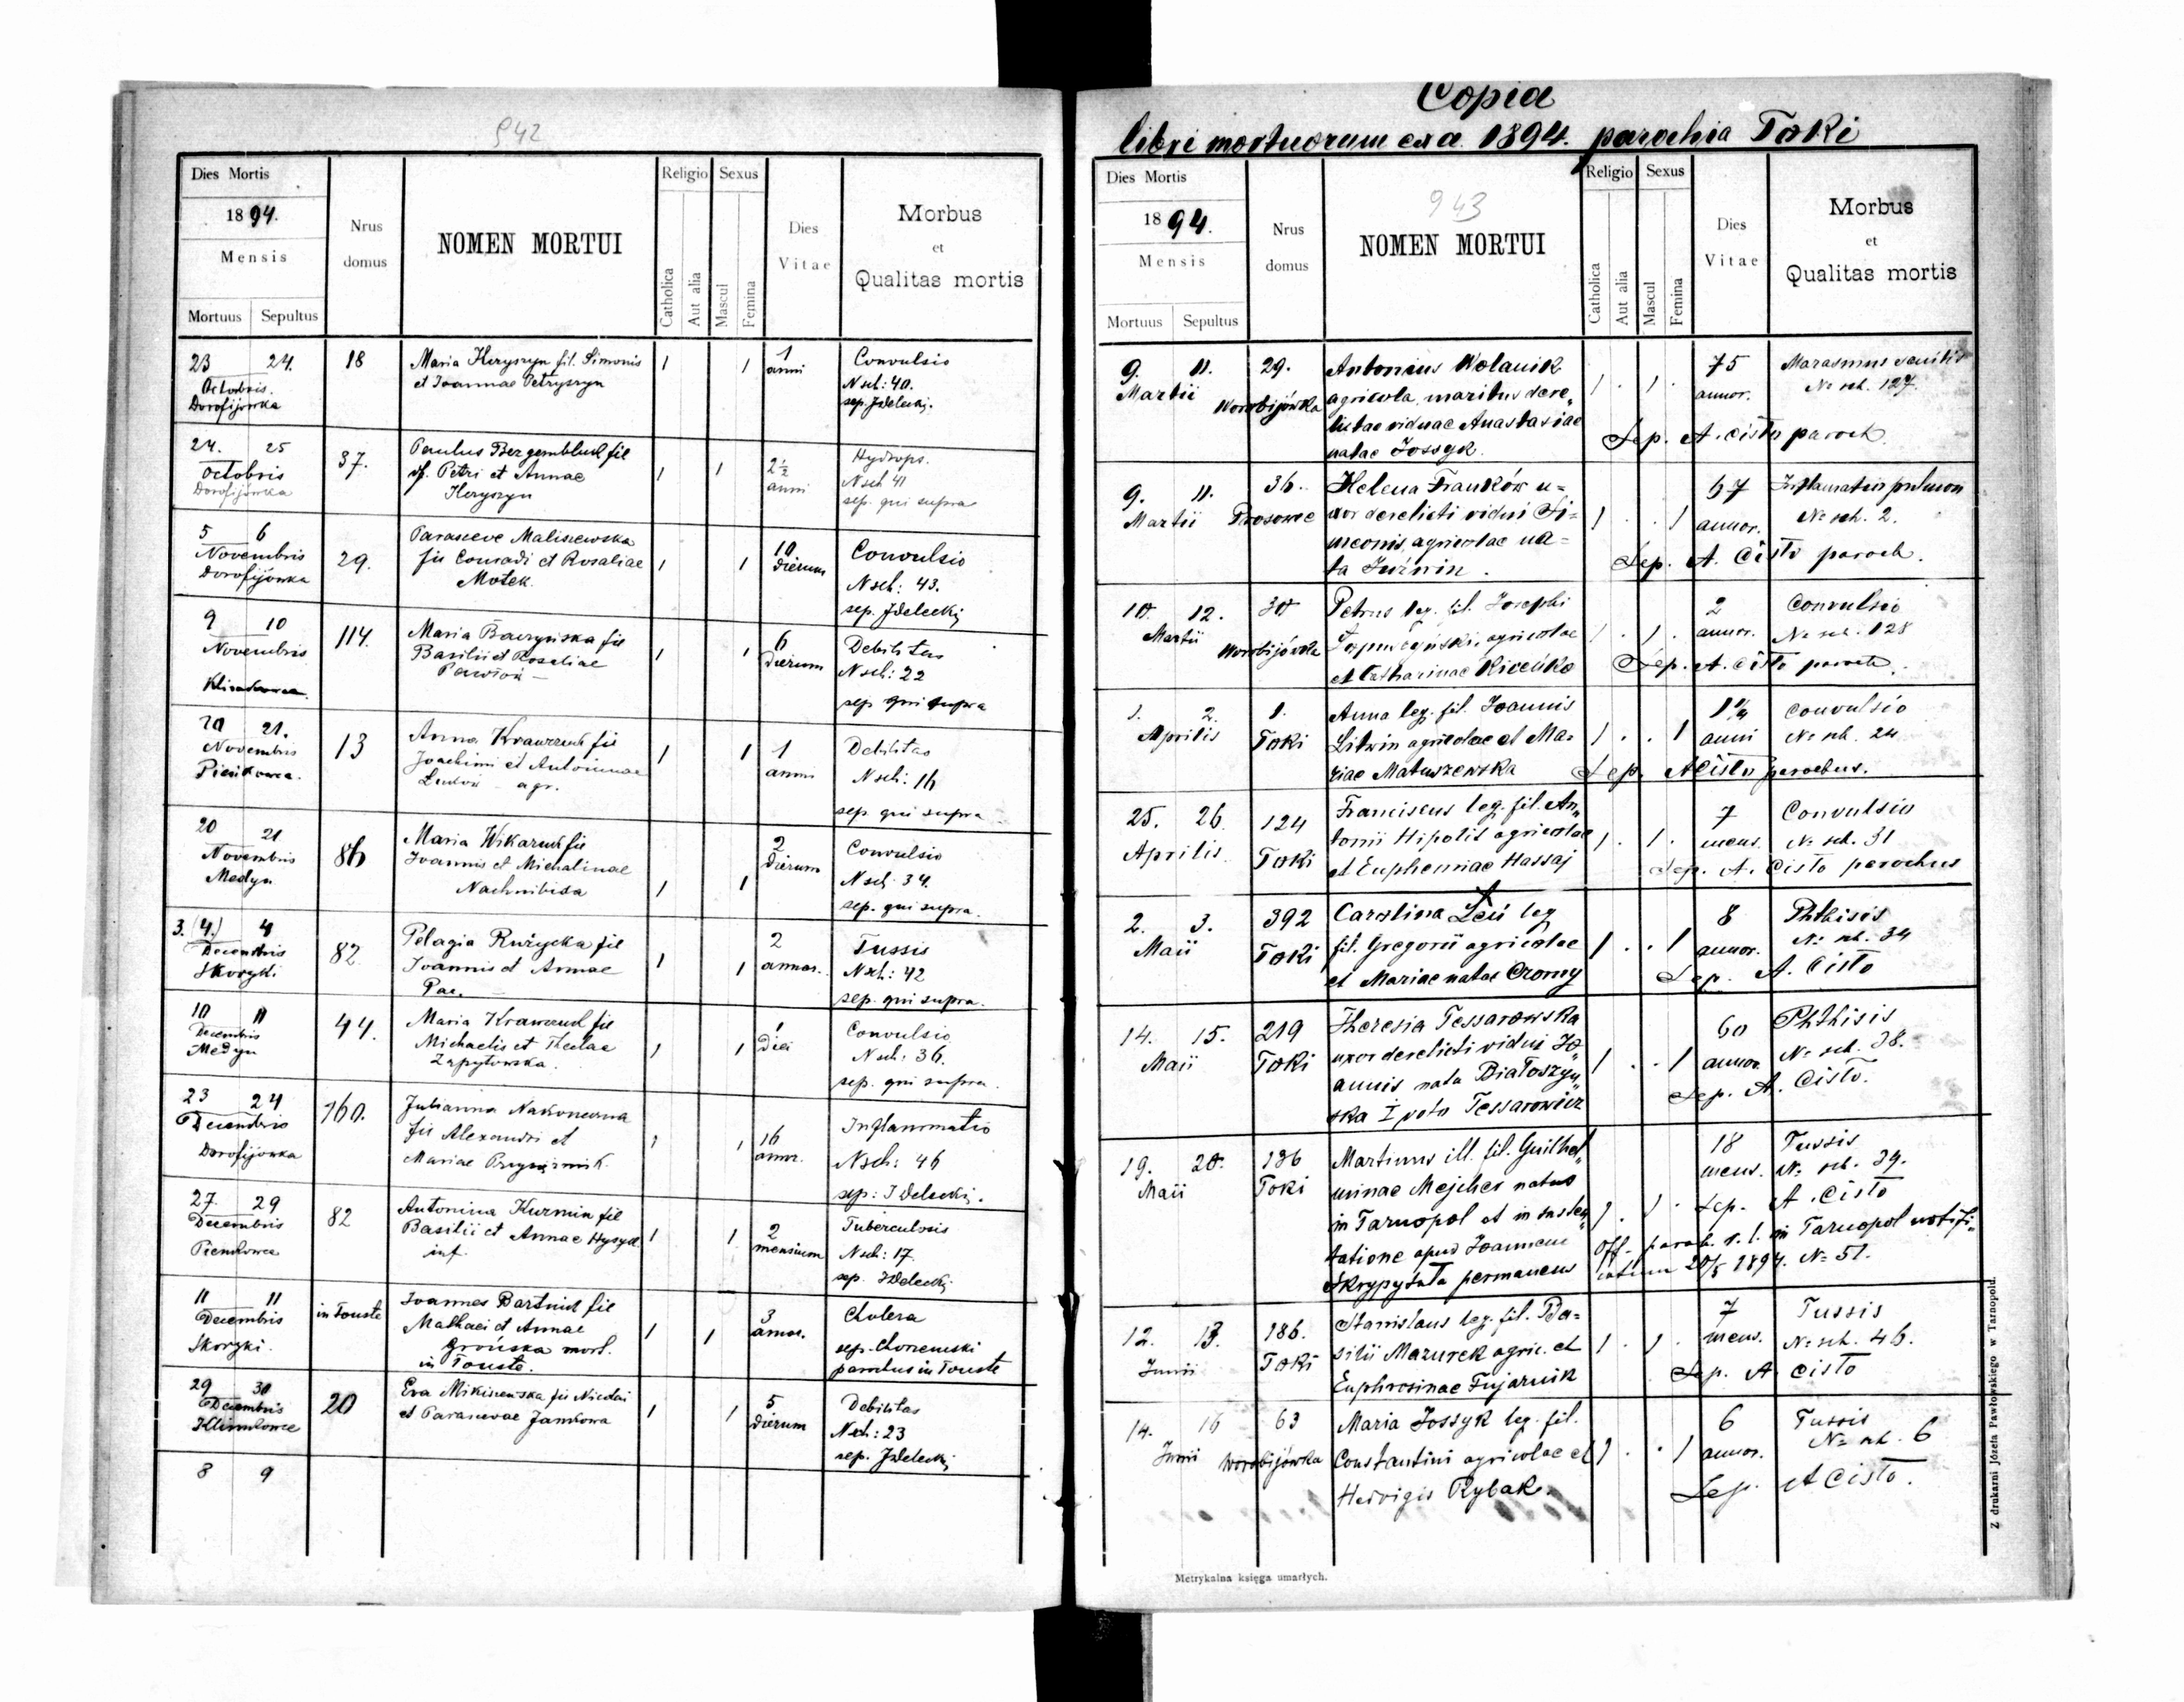 942
Dies Mortis
Religio
Sexus
1894.
Nrus
domus
NOMEN MORTUI
Dies
Vitae
Morbus
et
Qualitas mortis
Mensis
Catholica
Aut alia
Mascul
Femina
Mortuus
Sepultus
23 24. 18 Maria Heryszyn fil. Simonis 1 1 1 Convulsio
Octobris. et Joannae Petryszyn anni N sch: 40.
Dorofijówka
24. 25 37. Paulus fil 1 1 2½ Hydrops.
Octobris Petri et Annae anni N sch 41
Dorofijówka Heryszyn sep. qui supra
5 6 29. Parasceve Maliszewska 1 1 10 Convulsio
Novembris fil Conradi et Rosaliae dierum N sch: 43.
Dorofijówka Motek.
9 10 114. Maria fil 1 1 6 Debilitas
Novembris Basilii et Rosaliae dierum N sch: 22
sep qui supra
20 21. 13 Anna Krawczuk fil 1 1 1 Debilitas
Novembris Joachimi et Antoninae anni N sch: 16
agr.
sep. qui supra
20 21 86 Maria Wikarczuk fil 2 Convulsio
Novembris Joannis et Michalinae dierum N sch: 34.
Medyn 1 1
sep. qui supra.
3. (4.) 4 82. Pelagia Rużycka fil 2 Tussis
Decembris Joannis et Annae 1 1 annor. N sch: 42
Skoryki Pac. sep. qui supra.
10 11 44. Maria Krawczuk fil 1 Convulsio
Decembris Michaelis et Theclae 1 1 diei N sch: 36.
Medyn Zapytowska. sep. qui supra.
23 24 160. Julianna Nakoneczna Inflammatio
Decembris fil Alexandri et 1 1 16
Dorofijówka Mariae annor. N sch: 46
27. 29 82 Antonina Kuzmin fil 2 Tuberculosis
Decembris Basilii et Annae 1 1 mensium N sch: 17.
11 11 in Touste Joannes Bartnik fil 3 Cholera
Decembris Mathaei et Annae 1 1 annor.
Skoryki. mort.
in Touste. parochus in Touste
29 30 20 Eva fil Nicolai 1 1 5 Debilitas
Decembris et Parascevae Jankowa dierum N sch: 23
8 9
Copia
libri mortuorum ex a. 1894. parochia Toki
Dies Mortis
Religio
Sexus
1894.
943
Nrus
domus
NOMEN MORTUI
Dies
Vitae
Morbus
et
Qualitas mortis
Mensis
Catholica
Aut alia
Mascul
Femina
Mortuus
Sepultus
9. 11. 29. Antonius Wolanik 75 Marasmus senilis
Martii Worobijówka agricola, maritus dere„ 1 . 1 . annor. No sch. 127.
lictae viduae Anastasiae Sep. A. Cisło paroch.
natae Jossyk.
9. 11. 36. Helena Franków u= 67 Inflamatio pulmon
Martii Prosowce xor derelicti vidui Si= 1 . . 1 annor. No sch. 2.
meonis, agricolae na= Sep. A. Cisło paroch.
ta Juźwin.
10. 12. 30 Petrus leg. fil. Josephi 2 Convulsio
Martii Worobijówka agricolae 1 . 1 . annor. No sch. 128
et Catharinae Sep. A. Cisło paroch.
1. 2. 1. Anna leg. fil. Joannis 1¼ Convulsio
Aprilis Toki Litwin agricolae et Ma= 1 . . 1 anni No sch. 24
riae Matuszewska Sep. A Cisło parochus.
25. 26. 124 Franciscus leg. fil. An„ 7 Convulsio
Aprilis Toki tonii Hipolit agricolae 1 . 1 . mens. No sch. 31
et Eupheniae Hassaj Sep. A. Cisło parochus
2. 3. 392 Carolina Łeń leg 8 Phthisis
Maii Toki fil. Gregorii agricolae 1 . . 1 annor. No sch. 34
et Mariae natae Czorny Sep. A. Cisło
14. 15. 219 Theresia Tessarowska 60 Phthisis
Maii Toki uxor derelicti vidui Jo„ 1 . . 1 annor. No sch. 38.
annis nata Białoszyń„ Sep. A. Cisło.
ska I voto Tessarowicz
19. 20. 186 Martinus ill. fil. Guilhel„ 18 Tussis
Maii Toki minae Mejches natus mens. No sch. 39.
in Tarnopol et in susten„ 1 . 1 . Sep. A. Cisło
tatione apud Joannem Off. paroch. r. l. in Tarnopol notifi„
Skrypytuła permanens catum 20/5 1894. No 51.
12. 13. 186. Stanislaus leg. fil. Ba= 7 Tussis
Junii Toki silii Mazurek agric. et 1 . 1 . mens. No sch. 46.
Euphrosinae Fujarnik Sep. A Cisło
14. 16 63 Maria Jossyk leg. fil. 6 Tussis
Junii Worobijówka Constantini agricolae et 1 . . 1 annor. No sch. 6
Hedvigis Rybak. Sep. A Cisło.
Metrykalna księga umarłych.
Z drukarni Józefa Pawłowskiego w Tarnopolu.